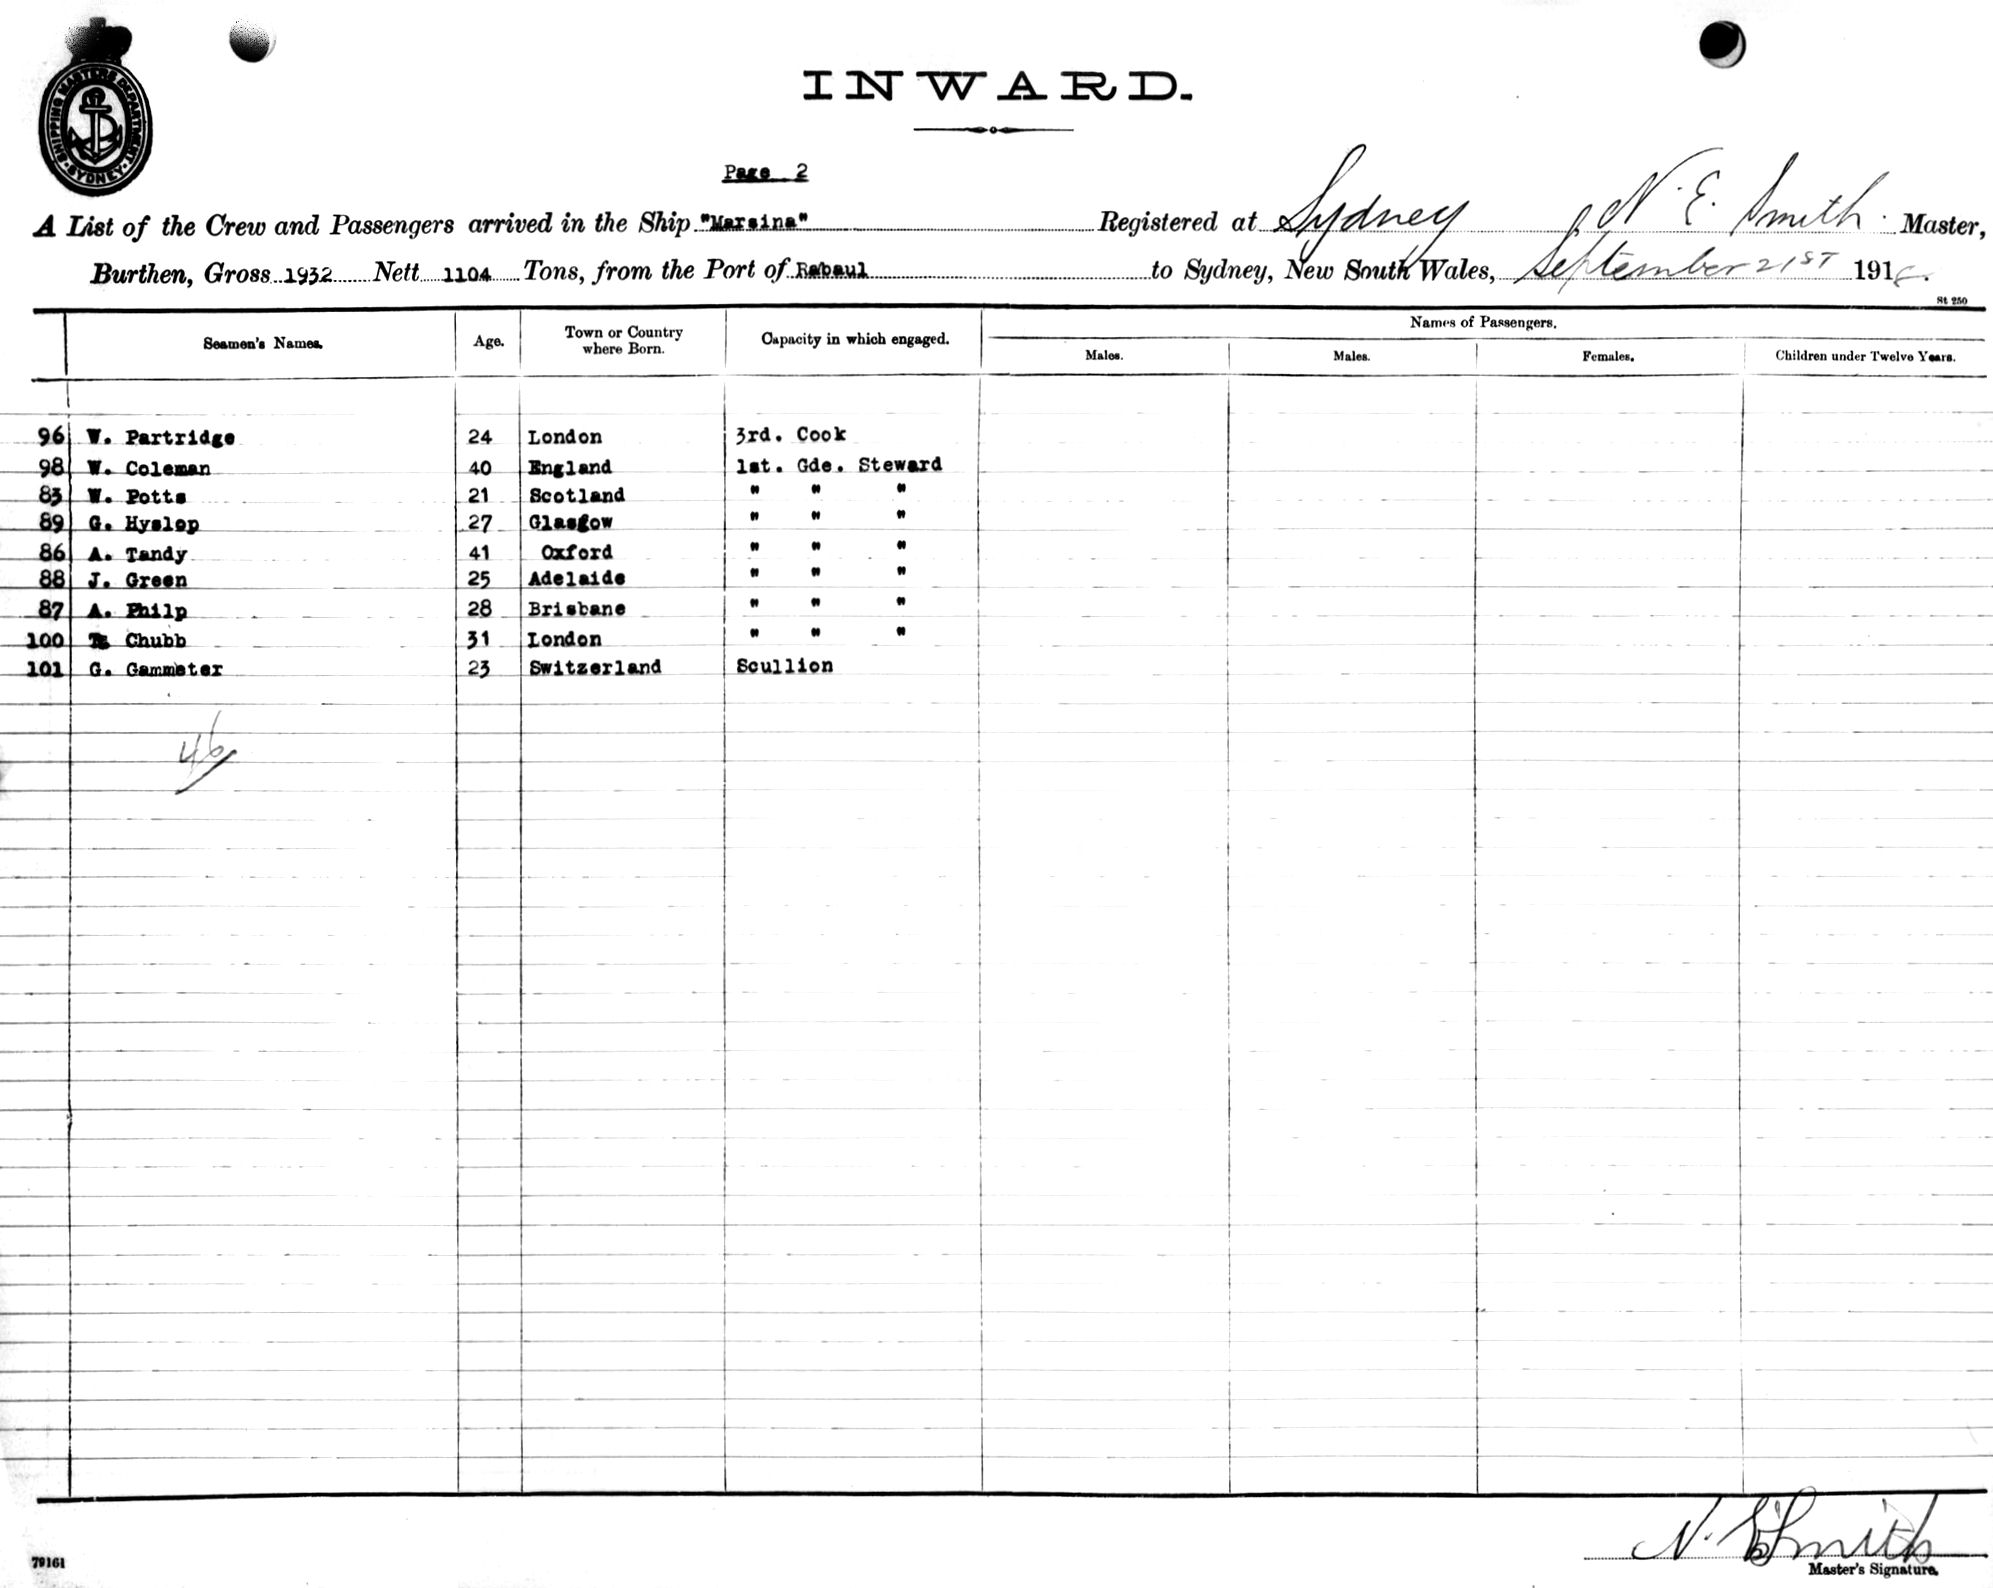 SHIPPING MASTERS DEPARTMENT
SYDNEY
INWARD.
Page 2
A List of the Crew and Passengers arrived in the Ship "Marsina" Registered at Sydney N. E. Smith. Master,
Burthen, Gross 1932 Nett 1104 Tons, from the Port of Rabaul to Sydney, New South Wales, September 21ST 191
St 250
Seamen's Names. Age. Town or Country where Born. Capacity in which engaged. Names of Passengers.
Males. Males. Females. Children under Twelve Years.
96 W. Partridge 24 London 3rd. Cook
98 W. Coleman 40 England 1st. Gde. Steward
83 W. Potts 21 Scotland " " "
89 G. Hyslop 27 Glasgow " " "
86 A. Tandy 41 Oxford " " "
88 J. Green 25 Adelaide " " "
87 A. Philp 28 Brisbane " " "
100 Chubb 31 London " " "
101 G. Gammeter 23 Switzerland Scullion
46
N. E. Smith
Master's Signature.
79161